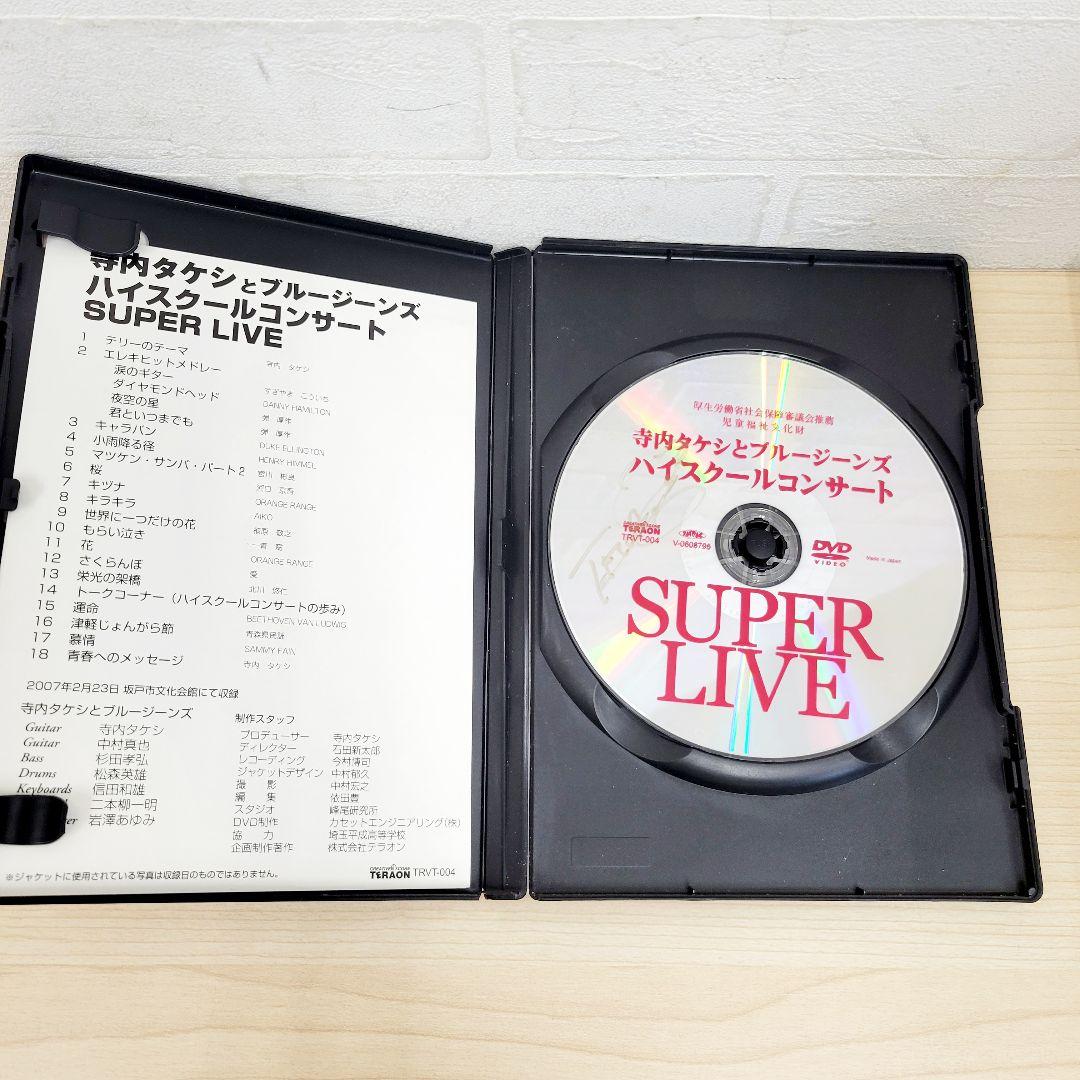 寺内タケシとブルージーンズ
ハイスクールコンサート
SUPER LIVE
1 テリーのテーマ 寺内 タケシ
2 エレキヒットメドレー
涙のギター すぎやま こういち
ダイヤモンドヘッド DANNY HAMILTON
夜空の星 弾 厚作
君といつまでも 弾 厚作
3 キャラバン DUKE ELLINGTON
4 小雨降る径 HENRY HIMMEL
5 マツケン・サンバ・パート2
6 桜
7 キヅナ ORANGE RANGE
8 キラキラ AIKO
9 世界に一つだけの花 槇原 敬之
10 もらい泣き 一青 窈
11 花 ORANGE RANGE
12 さくらんぼ 愛
13 栄光の架橋 北川 悠仁
14 トークコーナー（ハイスクールコンサートの歩み）
15 運命 BEETHOVEN VAN LUDWIG
16 津軽じょんがら節 青森県民謡
17 慕情 SAMMY FAIN
18 青春へのメッセージ 寺内 タケシ
2007年2月23日 坂戸市文化会館にて収録
寺内タケシとブルージーンズ
Guitar 寺内タケシ
Guitar 中村真也
Bass 杉田孝弘
Drums 松森英雄
Keyboards 信田和雄
二本柳一明
岩澤あゆみ
制作スタッフ
プロデューサー 寺内タケシ
ディレクター 石田新太郎
レコーディング 今村博司
ジャケットデザイン 中村郁久
撮 影 中村宏之
編 集 依田豊
スタジオ 峰尾研究所
DVD制作 カセットエンジニアリング(株)
協 力 埼玉平成高等学校
企画制作著作 株式会社テラオン
※ジャケットに使用されている写真は収録日のものではありません。
TERAON TRVT-004
厚生労働省社会保障審議会推薦
児童福祉文化財
寺内タケシとブルージーンズ
ハイスクールコンサート
TERAON
TRVT-004
V-0608796
DVD
VIDEO
Made in Japan
SUPER
LIVE